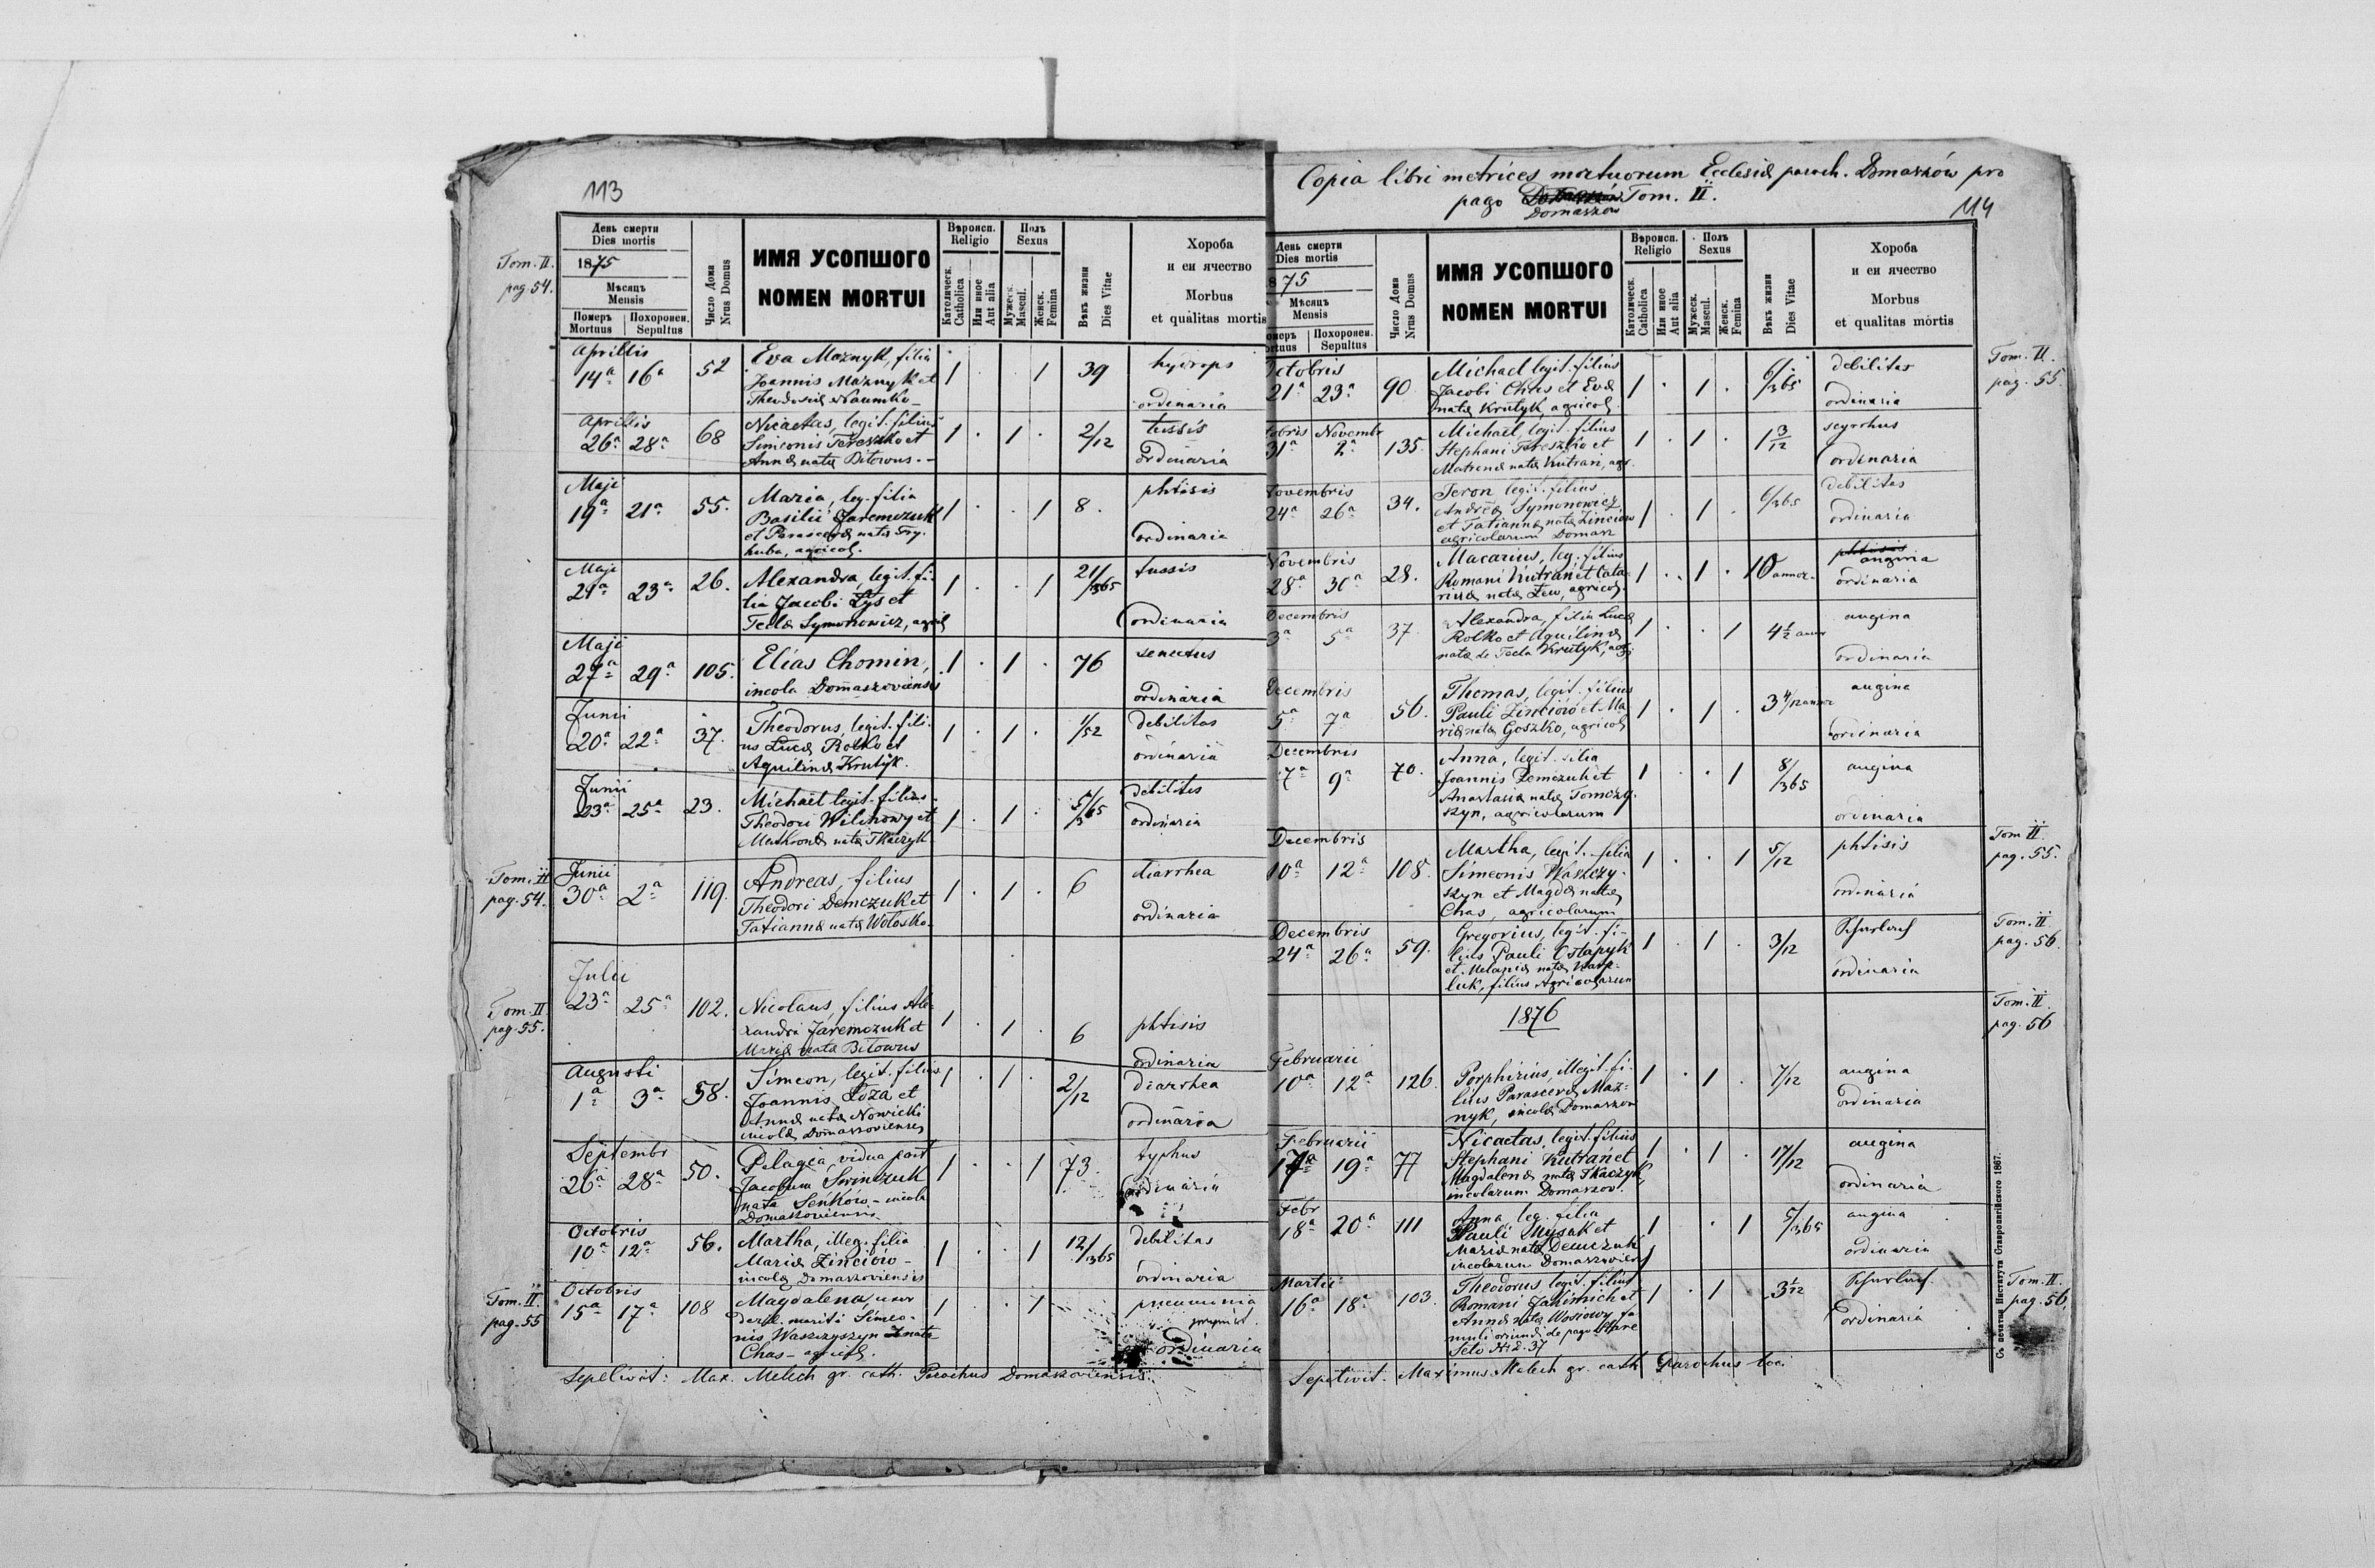 113
Tom. II.
pag. 54.
День смерти
Dies mortis
1875
Мѣсяцъ
Mensis
Померъ
Mortuus
Похоронен.
Sepultus
Число Дома
Nrus Domus
ИМЯ УСОПШОГО
NOMEN MORTUI
Вѣроисп.
Religio
Католическ.
Catholica
Или иное
Aut alia
Полъ
Sexus
Мужеск.
Mascul.
Женск.
Femina
Вѣкъ жизни
Dies Vitae
Хороба
и еи ячество
Morbus
et qualitas mortis
Aprilis
14a 16a 52 Eva Maznyk, filia
Joannis Maznyk et
Theodosiæ Naumko
1 . . 1 39 hydrops
ordinaria
Aprilis
26a 28a 68 Nicaetas, legit. filius
Simeonis Tereszko et
Annæ natæ Bitowus
1 . 1 . 2/12 tussis
ordinaria
Maji
19a 21a 55. Maria, leg. filia
Basilii Jaremczuk
et Parascevæ natæ Try-
huba, agricol.
1 . . 1 8. phtisis
ordinaria
Maji
21a 23a 26. Alexandra, legit. fi-
lia Jacobi Łys et
Teclæ Symonowicz, agricol
1 . . 1 21/365 tussis
ordinaria
Maji
27a 29a 105. Elias Chomin,
incola Domaszoviensis
1 . 1 . 76 senectus
ordinaria
Junii
20a 22a 37. Theodorus, legit. fili-
us Lucæ Rolko et
Aquilinæ Krutyk.
1 . 1 . 1/52 debilitas
ordinaria
Junii
23a 25a 23. Michael legit. filius
Theodori Wilchowy et
natæ Tkaczyk
1 . 1 . 5/365 debilitas
ordinaria
Tom. II
pag. 54.
Junii
30a 2a 119. Andreas, filius
Theodori Demczuk et
Tatiannæ natæ Wołoszko
1 . 1 . 6 diarrhea
ordinaria
Tom. II
pag. 55.
Julii
23a 25a 102. Nicolaus, filius Ale-
xandri Jaremczuk et
Mariæ natæ Bitowus
1 . 1 . 6 phtisis
ordinaria
Augusti
1a 3a 58. Simeon, legit. filius
Joannis Łoza et
Annæ natæ Nowicki
incolæ Domaszovienses
1 . 1 . 2/12 diarrhea
ordinaria
Septembr
26a 28a 50. Pelagia, vidua post
Jacobum Swinczuk
nata Seńkow - incola
Domaszoviensis
1 . . 1 73. typhus
ordinaria
Octobris
10a 12a 56. Martha, illeg. filia
Mariæ Zinciów -
incolæ Domaszoviensis
1 . . 1 12/365 debilitas
ordinaria
Tom. II.
pag. 55
Octobris
15a 17a 108 Magdalena, uxor
marití Simeo-
nis Waszczyszyn nata
Chas - agricol.
1 . . 1 pneumonia
ordinaria
Sepelivit: Max. Melech gr. cath. Parochus Domaszoviensis.
Copia libri metrices mortuorum Ecclesiæ paroch. Domaszów pro
pago Tom. II.
Domaszow
114
День смерти
Dies mortis
875
Мѣсяцъ
Mensis
Похоронен.
Sepultus
Число Дома
Nrus Domus
ИМЯ УСОПШОГО
NOMEN MORTUI
Вѣроисп.
Religio
Католическ.
Catholica
Или иное
Aut alia
Полъ
Sexus
Мужеск.
Mascul.
Женск.
Femina
Вѣкъ жизни
Dies Vitae
Хороба
и еи ячество
Morbus
et qualitas mórtis
Tom. II.
pag. 55
Octobris
21a 23a 90. Michael legit. filius
Jacobi Chas et Evæ
natæ Krutyk, agricol.
1 . 1 . 6/365 debilitas
ordinaria
obris Novembr
31a 2a 135. Michael, legit. filius
Stephani Tereszko et
Matronæ natæ Kutran, agr.
1 . 1 . 1 3/12 scyrrhus
ordinaria
Novembris
24a 26a 34. Jeron legit. filius
Andreæ Symonowicz
et Tatiannæ natæ Zinciow
agricolarum Domasz
1 . 1 . 6/365 debilitas
ordinaria
Novembris
28a 30a 28. Macarius, leg. filius
Romani Kutran et Cata-
rinæ natæ Lew, agricol.
1 . 1 . 10 annor. phtisis
angina
ordinaria
Decembris
3a 5a 37. Alexandra, filia Lucæ
Rolko et Aquilinæ
natæ de Tecla Krutyk, agr.
1 . . 1 4 1/2 annor angina
ordinaria
Decembris
5a 7a 56. Thomas, legit. filius
Pauli Zinciów et Ma-
riæ natæ Goszko, agricol
1 . 1 . 3 4/12 annor angina
ordinaria
Decembris
7a 9a 70. Anna, legit. filia
Joannis Demczuk et
Anastasiæ natæ Tomczy-
szyn, agricolarum
1 . . 1 8/365 angina
ordinaria
Tom II
pag. 55.
Decembris
10a 12a 108. Martha, legit. filia
Simeonis Waszczy-
szyn et Magdæ natæ
Chas, agricolarum
1 . . 1 5/12 phtisis
ordinaria
Tom. II
pag. 56.
Decembris
24a 26a 59. Gregorius, legit. fi-
lius Pauli Ostapyk
et Melaniæ natæ
luk, filius Agricolarum
1 . 1 . 3/12
ordinaria
1876
Tom. II.
pag. 56
Februarii
10a 12a 126. Porphirius, illegit. fi-
lius Parascevæ Maz-
nyk, incolæ Domaszow
1 . 1 . 7/12 angina
ordinaria
Februarii
17a 19a 77 Nicaetas, legit. filius
Stephani Kutran et
Magdalenæ natæ Tkaczyk,
incolarum Domaszov.
1 . 1 . 17/12 angina
ordinaria
Febr
18a 20a 111 Anna, leg. filia
Pauli Mysak et
Mariæ natæ Demczuk
incolarum Domaszovien
1 . 1 5/365 angina
ordinaria
Tom. II.
pag. 56.
Martii
16a 18a 103. Theodorus legit. filius
Romani Jakimich et
Annæ natæ Wosiowy fa-
muli oriundi de pago Stare
Seło N. d. 37
1 . 1 3 1/12
ordinaria
Sepelivit. Maximus Melech gr. cath. Parochus loci
Съ печатни Института Ставропигійского 1867.